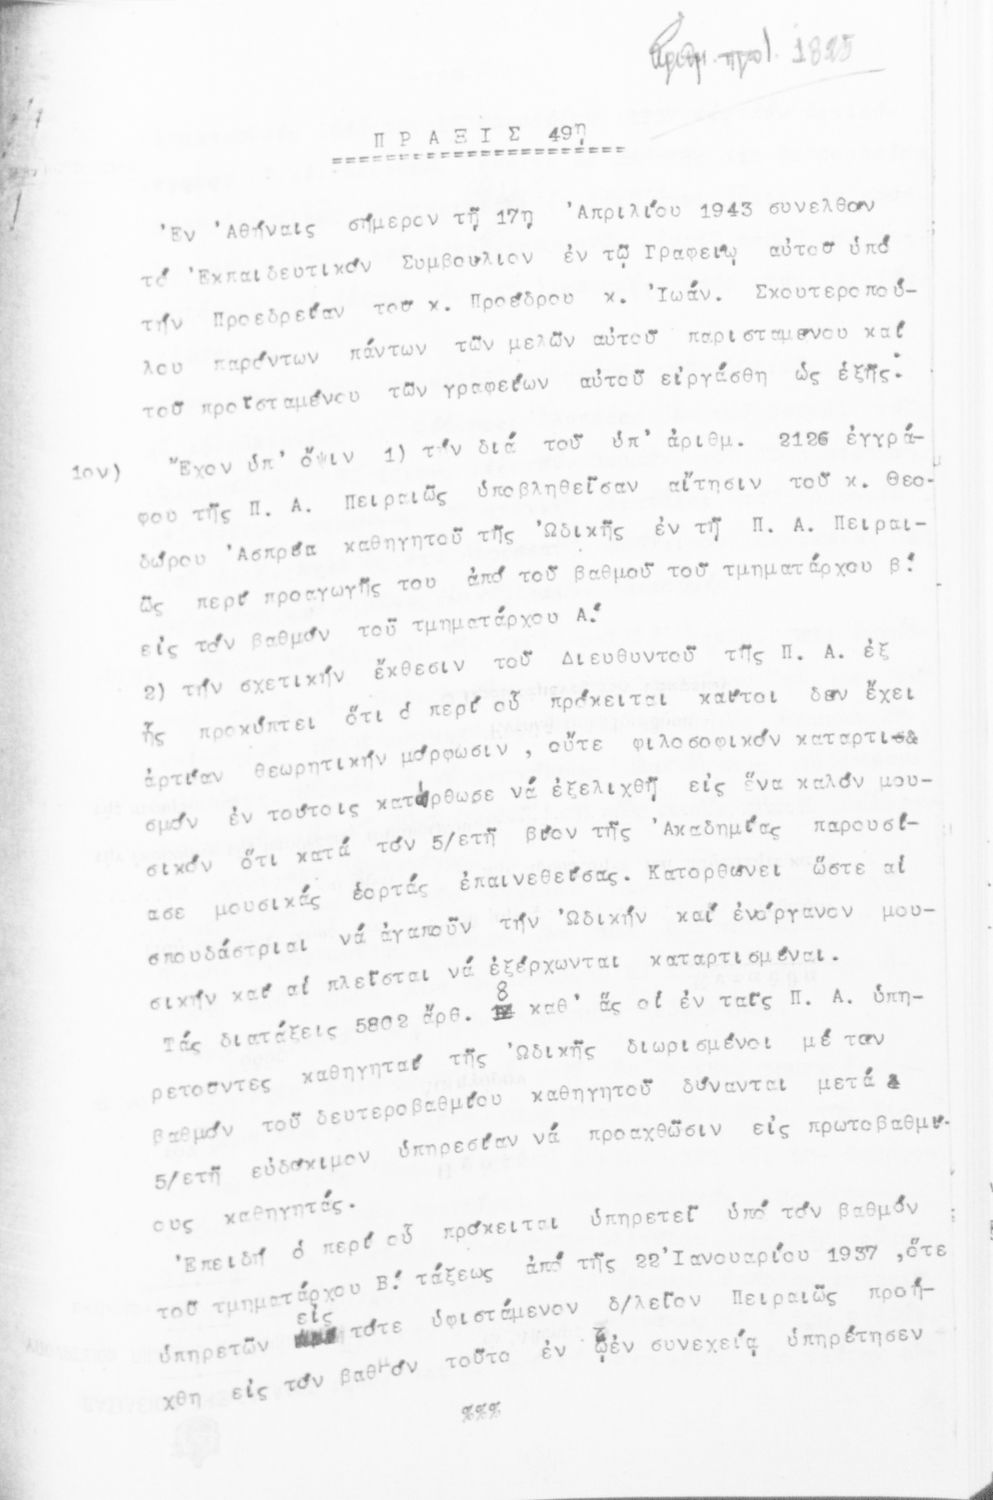 Ἀριθμ. πρωτ. 1825
Π Ρ Α Ξ Ι Σ 49η
Ἐν Ἀθήναις σήμερον τῇ 17ῃ Ἀπριλίου 1943 συνελθόν
τό Ἐκπαιδευτικόν Συμβούλιον ἐν τῷ Γραφείῳ αὐτοῦ ὑπό
τήν Προεδρείαν τοῦ κ. Προέδρου κ. Ἰωάν. Σκουτεροπού-
λου παρόντων πάντων τῶν μελῶν αὐτοῦ παρισταμένου καί
τοῦ προϊσταμένου τῶν γραφείων αὐτοῦ εἰργάσθη ὡς ἑξῆς:
1ον) Ἔχον ὑπ' ὄψιν 1) τήν διά τοῦ ὑπ' ἀριθμ. 2126 ἐγγρά-
φου τῆς Π. Α. Πειραιῶς ὑποβληθεῖσαν αἴτησιν τοῦ κ. Θεο-
δώρου Ἀσπρέα καθηγητοῦ τῆς Ὠδικῆς ἐν τῇ Π. Α. Πειραι-
ῶς περί προαγωγῆς του ἀπό τοῦ βαθμοῦ τοῦ τμηματάρχου β!
εἰς τόν βαθμόν τοῦ τμηματάρχου Α!
2) τήν σχετικήν ἔκθεσιν τοῦ Διευθυντοῦ τῆς Π. Α. ἐξ
ἧς προκύπτει ὅτι ὁ περί οὗ πρόκειται καίτοι δέν ἔχει
ἀρτίαν θεωρητικήν μόρφωσιν , οὔτε φιλοσοφικόν καταρτι-
σμόν ἐν τούτοις κατώρθωσε νά ἐξελιχθῇ εἰς ἕνα καλόν μου-
σικόν ὅτι κατά τόν 5/ετῆ βίον τῆς Ἀκαδημίας παρουσί-
ασε μουσικάς ἑορτάς ἐπαινεθείσας. Κατορθώνει ὥστε αἱ
σπουδάστριαι νά ἀγαποῦν τήν Ὠδικήν καί ἐνόργανον μου-
σικήν καί αἱ πλεῖσται νά ἐξέρχωνται καταρτισμέναι.
Τάς διατάξεις 5802 ἄρθ. 8 καθ' ἅς οἱ ἐν ταῖς Π. Α. ὑπη-
ρετοῦντες καθηγηταί τῆς Ὠδικῆς διωρισμένοι μέ τόν
βαθμόν τοῦ δευτεροβαθμίου καθηγητοῦ δύνανται μετά
5/ετῆ εὐδόκιμον ὑπηρεσίαν νά προαχθῶσιν εἰς πρωτοβαθμί-
ους καθηγητάς.
Ἐπειδή ὁ περί οὗ πρόκειται ὑπηρετεῖ ὑπό τόν βαθμόν
τοῦ τμηματάρχου Β! τάξεως ἀπό τῆς 22 Ἰανουαρίου 1937 ,ὅτε
ὑπηρετῶν εἰς τότε ὑφιστάμενον δ/λεῖον Πειραιῶς προή-
χθη εἰς τόν βαθμόν τοῦτο ἐν ᾧ ἐν συνεχείᾳ ὑπηρέτησεν
%%%